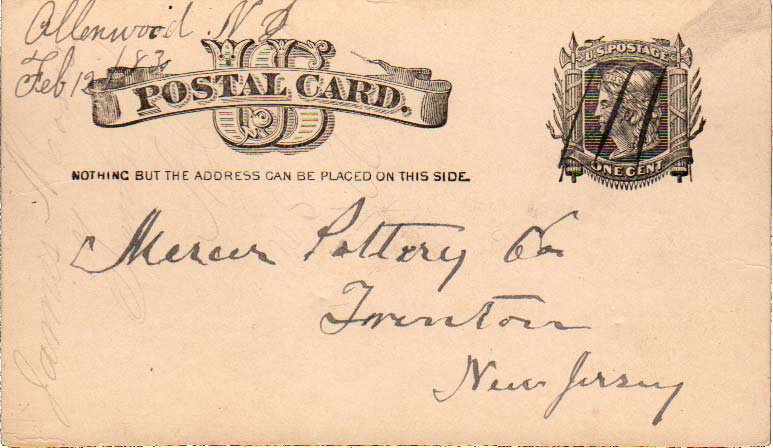 Allenwood N J
Feb 12
U.S. POSTAGE
US
POSTAL CARD.
ONE CENT
NOTHING BUT THE ADDRESS CAN BE PLACED ON THIS SIDE.
Mercer Pottery Co
Trenton
New Jersey
James